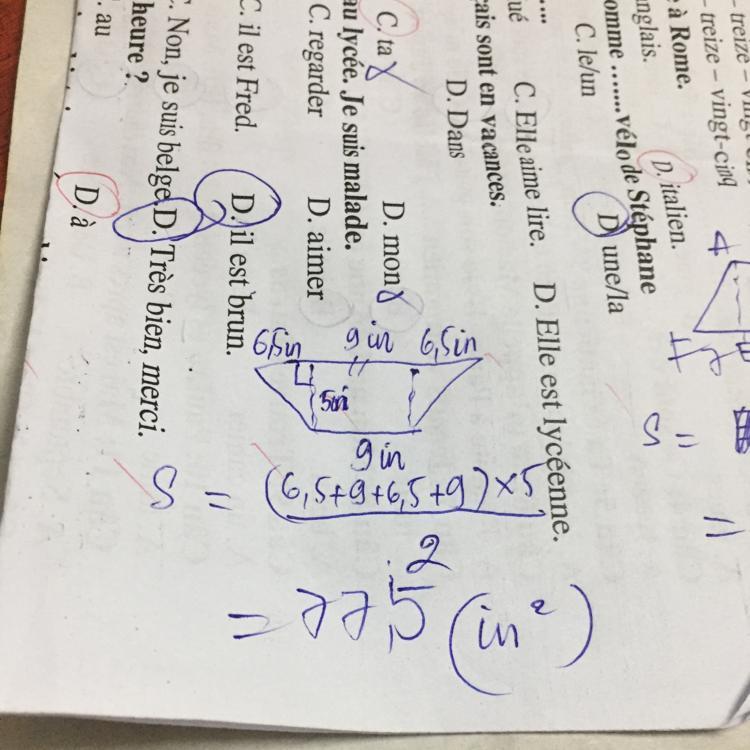 – treize – vingt-cinq
à Rome.
anglais. D. italien.
omme .......vélo de Stéphane
C. le/un D. une/la
C. Elle aime lire. D. Elle est lycéenne.
sont en vacances.
D. Dans
C. ta D. mon
au lycée. Je suis malade.
C. regarder D. aimer
C. il est Fred. D. il est brun.
C. Non, je suis belge. D. Très bien, merci.
heure ?
. au D. à
6,5in 9 in 6,5in
5in
9 in
S = (6,5+9+6,5+9)×5
2
= 77,5 (in²)
S =
=